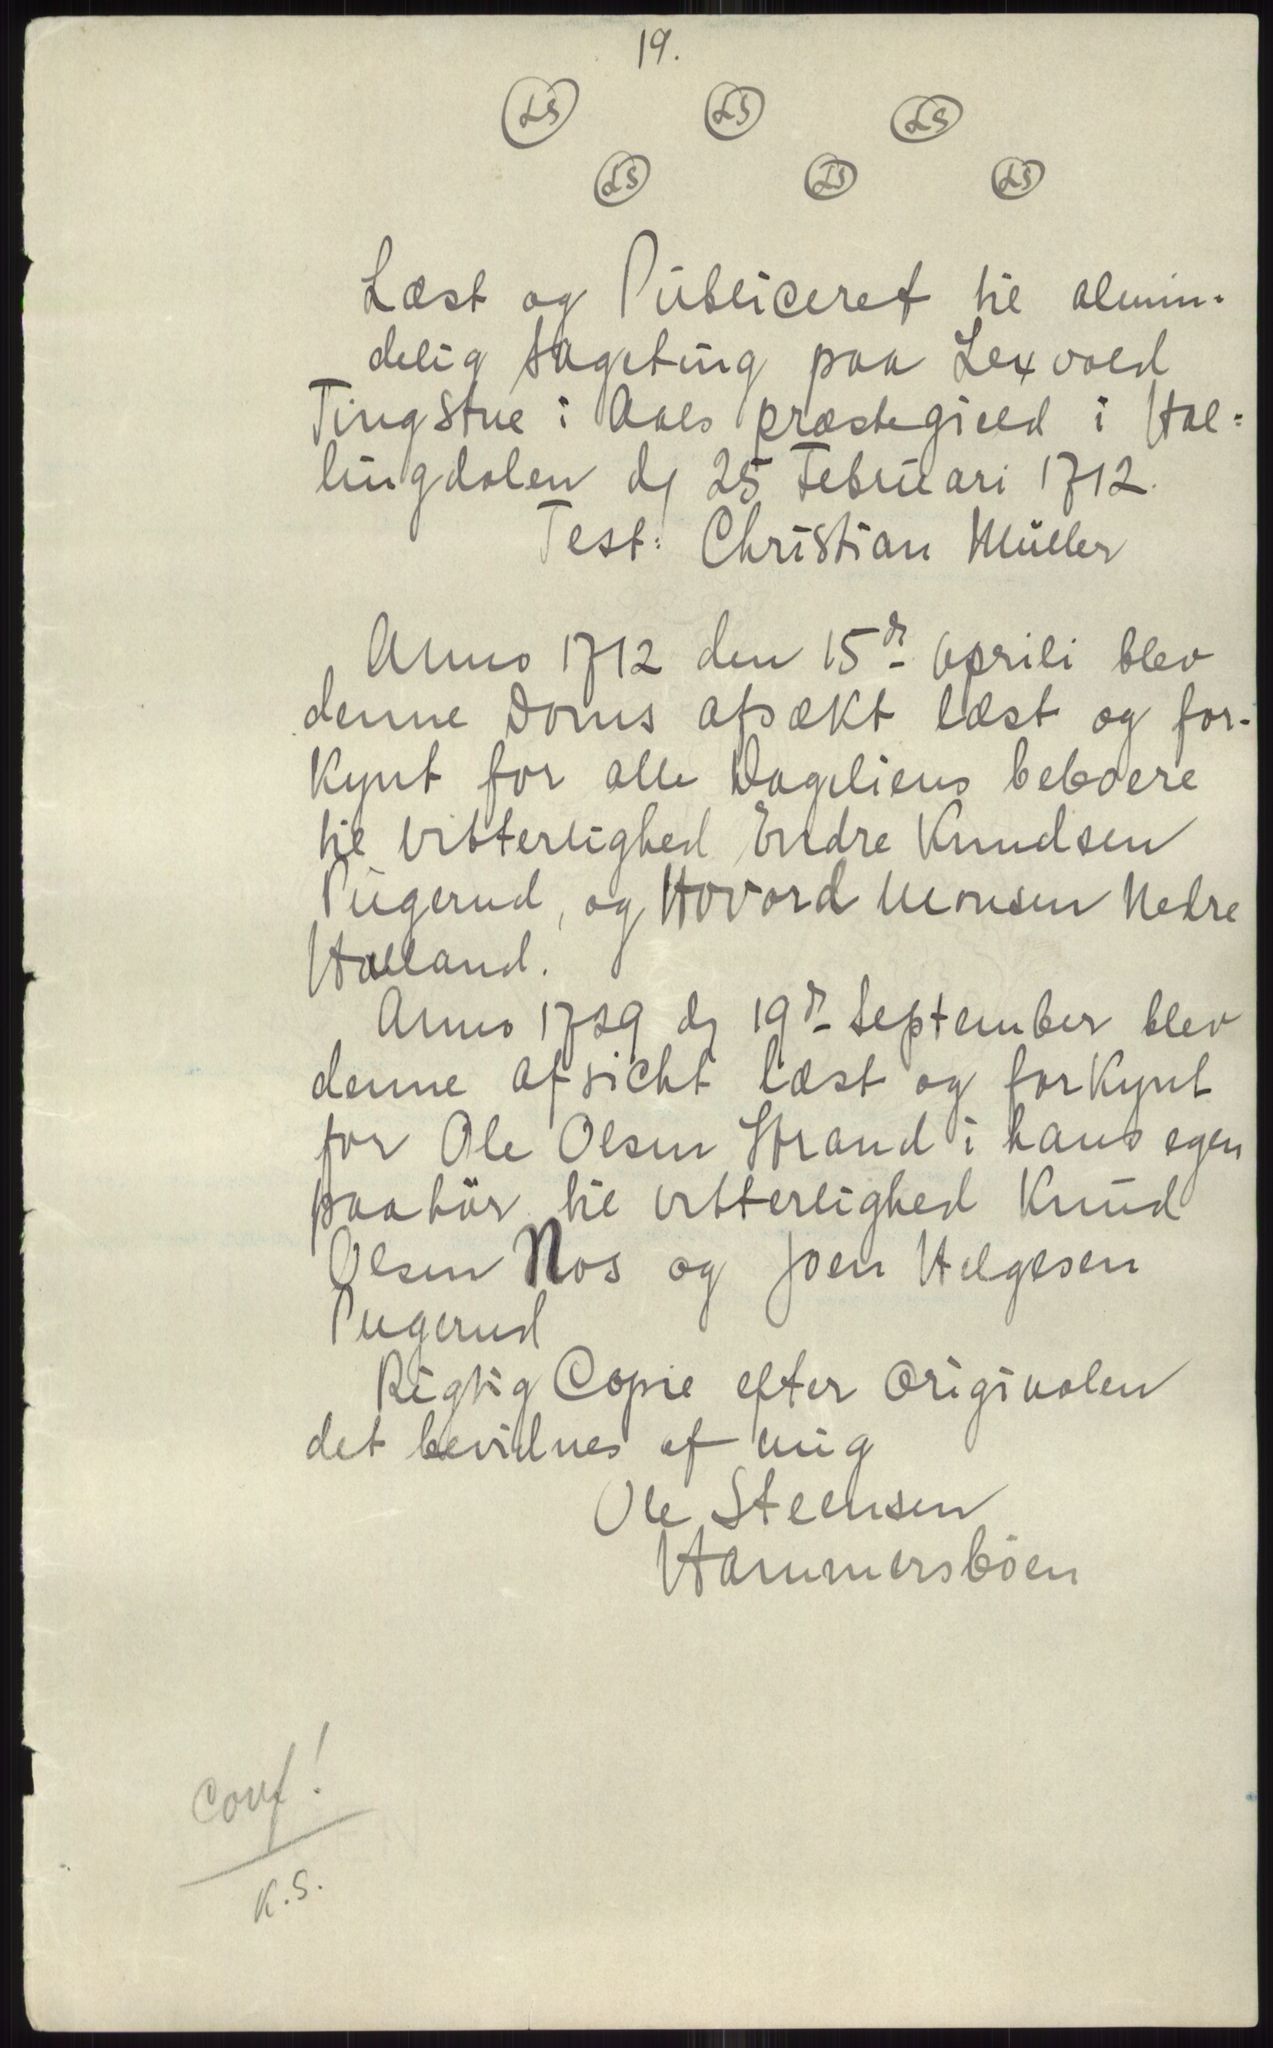 19.
LS LS LS
LS LS LS
Læst og Publiceret til almin-
delig Sageting paa Lexvold
Tingstue i Aals præstegield i Hal=
lingdalen dj 25 Februari 1712.
Test: Christian Müller
Anno 1712 den 15de Aprili blev
denne Doms afsækt læst og for-
kynt for alle Dagaliens beboere
til vitterlighed Endre Knudsen
Pugerud, og Hovord Monsen Nedre
Halland.
Anno 1729 dj 19de September blev
denne afsicht læst og forkynt
for Ole Olsen Strand i hans egen
paahør til vitterlighed Knud
Olsen Nos og Joen Helgesen
Pugerud
Rigtig Copie efter Originalen
det bevidnes af mig
Ole Steensen
Hammersbøen
Conf!
K.S.